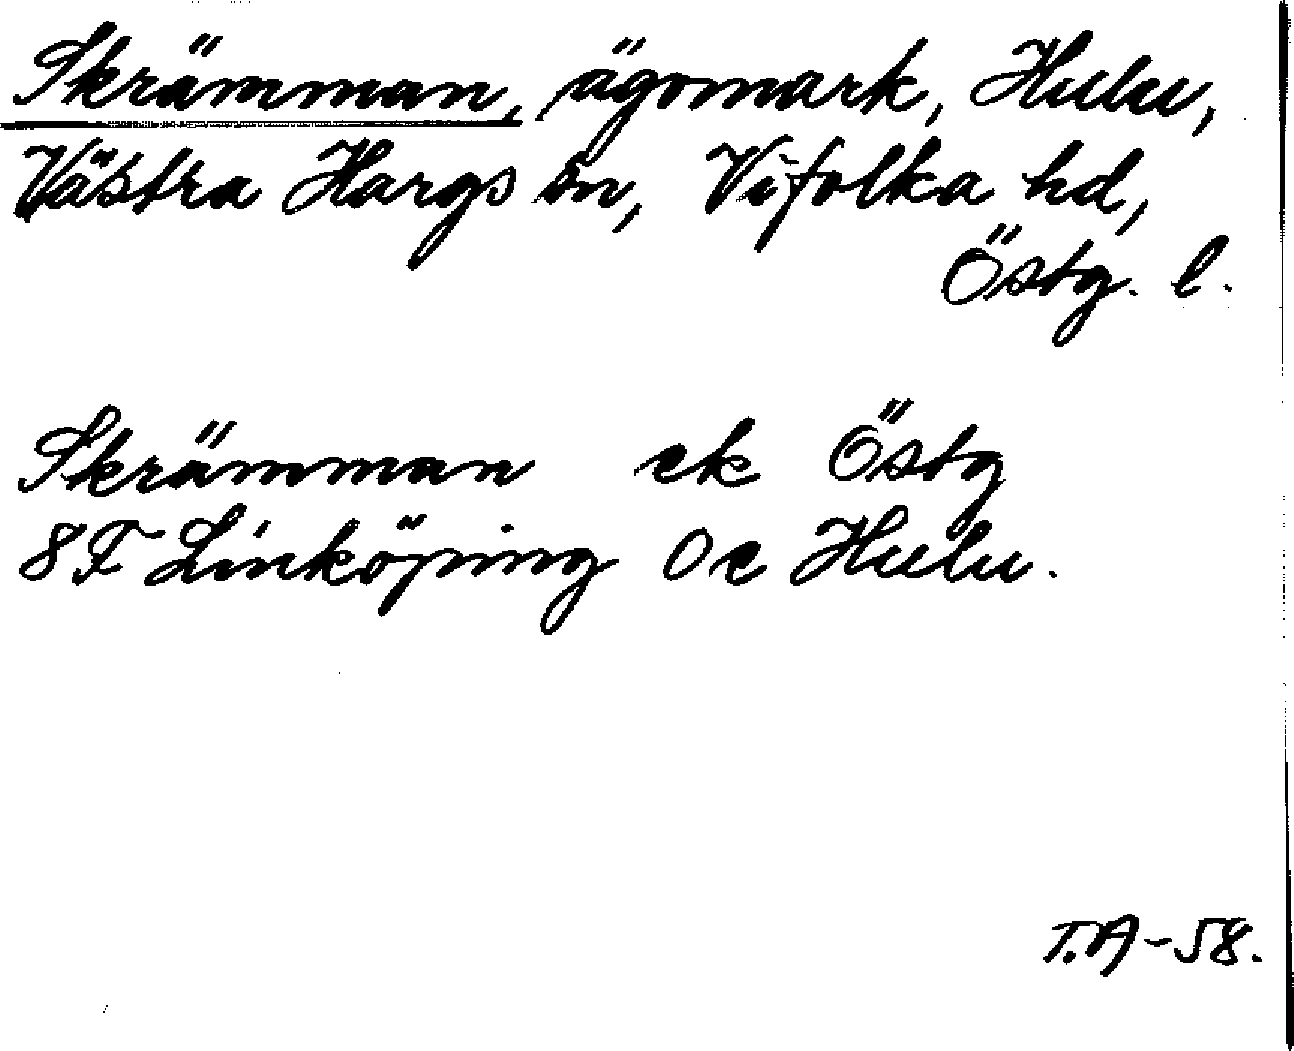 Skrämman, ägomark, Hulu,
Västra Hargs sn, Vifolka hd,
Östg. l.
Skrämman ek Östg
8F Linköping 0e Hulu.
T.A-58.